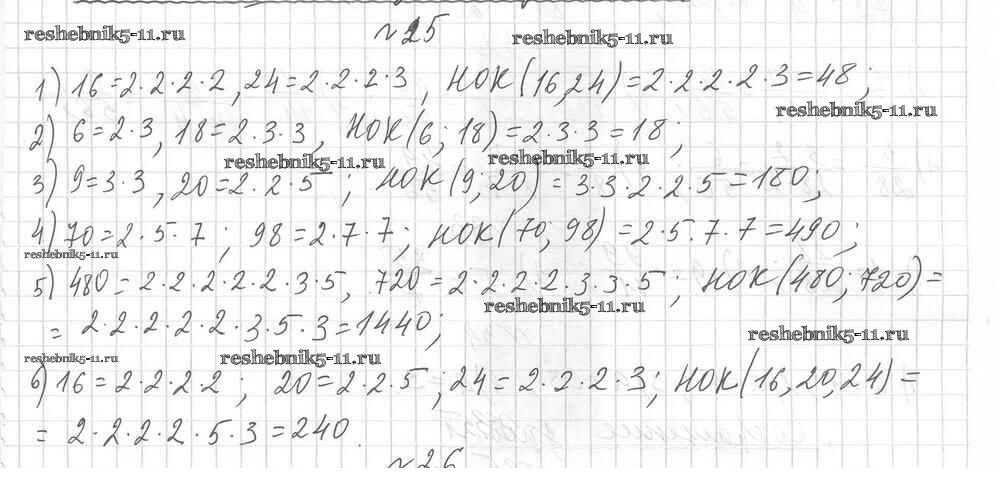 reshebnik5-11.ru
№25
reshebnik5-11.ru
1) 16=2·2·2·2, 24=2·2·2·3, НОК(16,24)=2·2·2·2·3=48;
reshebnik5-11.ru
2) 6=2·3, 18=2·3·3, НОК(6; 18)=2·3·3=18;
reshebnik5-11.ru
reshebnik5-11.ru
3) 9=3·3, 20=2·2·5; НОК(9; 20)=3·3·2·2·5=180;
4) 70=2·5·7; 98=2·7·7; НОК(70; 98)=2·5·7·7=490;
reshebnik5-11.ru
5) 480=2·2·2·2·2·3·5, 720=2·2·2·2·3·3·5; НОК(480; 720)=
reshebnik5-11.ru
=2·2·2·2·2·3·5·3=1440;
reshebnik5-11.ru
reshebnik5-11.ru
reshebnik5-11.ru
6) 16=2·2·2·2; 20=2·2·5; 24=2·2·2·3; НОК(16,20,24)=
=2·2·2·2·5·3=240.
№26